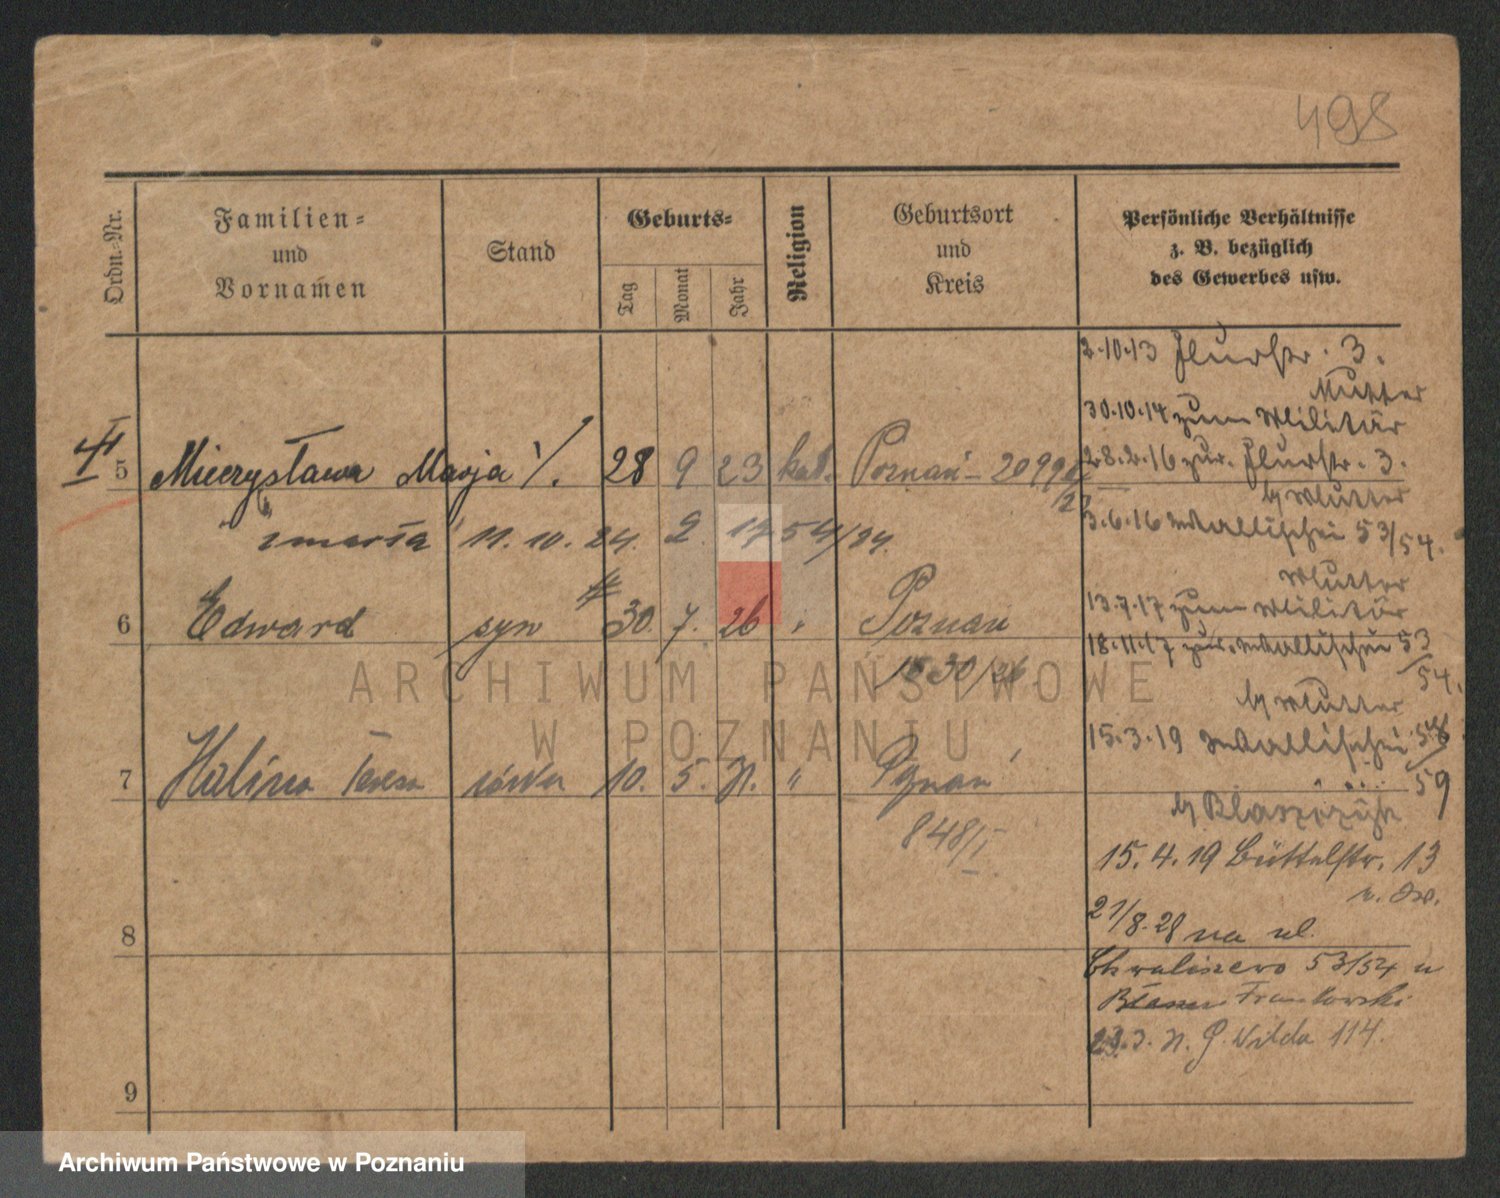 498
Ordn.-Nr.
Familien-
und
Vornamen
Stand
Geburts-
Tag
Monat
Jahr
Religion
Geburtsort
und
Kreis
Persönliche Verhältnisse
z. B. bezüglich
des Gewerbes usw.
2.10.13 Flurstr. 3.
Mutter
30.10.14 zum Militär
5 Mieczysława Marja 28 9 23 kat. Poznań - 2099
28.2.16 zur. Flurstr. 3.
b/ Mutter
zmarła 11. 10. 24. 54/24.
3.6.16 Wallischei 53/54.
Mutter
13.7.17 zum Militär
6 Edward syn 30. 7. 26 " Poznań
1530/26
18.11.17 zur. Wallischei 53/54.
b/ Mutter
15.3.19 Wallischei 59
7 Halina Teresa córka 10. 5. 31. " Poznań
848/I
b/ Blaszczyk
15.4.19 Büttelstr. 13
8
21/8.28 na ul.
Chwaliszewo 53/54 u
Frankowski
23.3. 31. G. Wilda 114.
9
ARCHIWUM PAŃSTWOWE
W POZNANIU
Archiwum Państwowe w Poznaniu